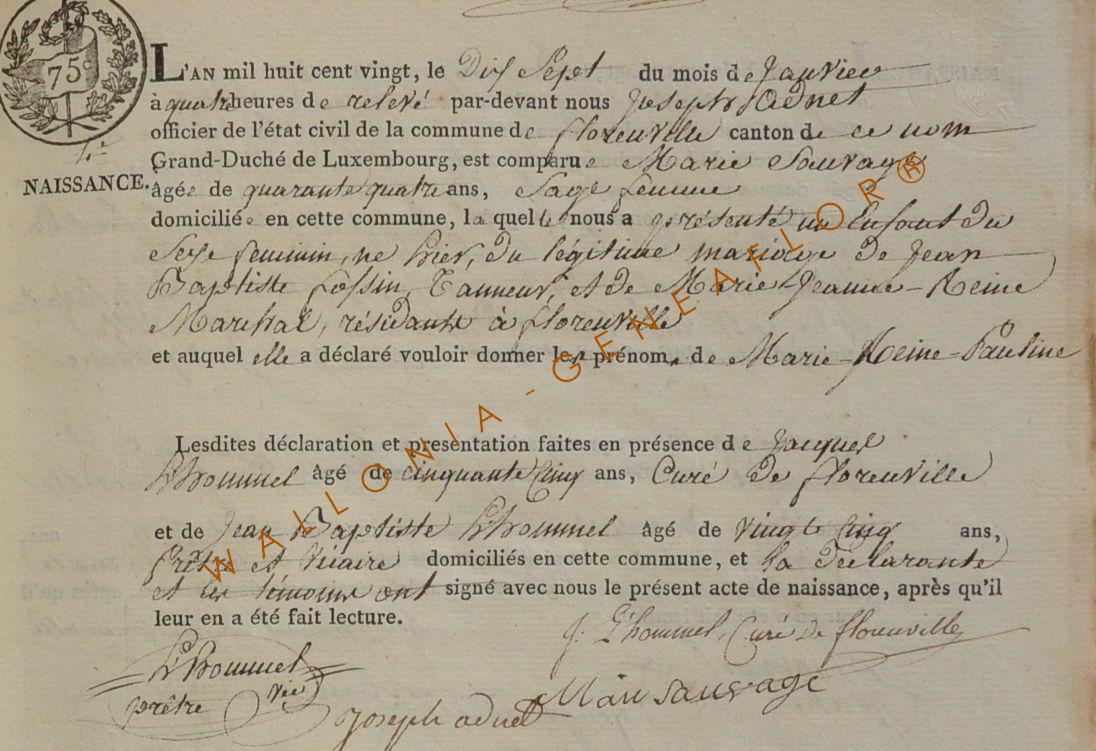 75c
L'AN mil huit cent vingt, le Dix Sept du mois de Janvier
à quatre heures de relevé par-devant nous Joseph Adnet
officier de l'état civil de la commune de florenville canton de ce nom
4e
Grand-Duché de Luxembourg, est comparue Marie Sauvage
NAISSANCE.
âgée de quarante quatre ans, Sage femme
domiciliée en cette commune, la quelle nous a présenté un Enfant du
Sexe feminin, né hier, du légitime mariage de Jean
Baptiste fossin, Tanneur, et de Marie-Jeanne-Reine
Maréchal, résidants à florenville
et auquel elle a déclaré vouloir donner les prénoms de Marie-Reine-Pauline
Lesdites déclaration et presentation faites en présence de Jacques
L'hommel âgé de Cinquante Cinq ans, Curé de florenville
et de Jean Baptiste L'hommel âgé de Vingt Cinq ans,
Prêtre et Vicaire domiciliés en cette commune, et la Déclarante
et les témoins ont signé avec nous le présent acte de naissance, après qu'il
leur en a été fait lecture.
J: L'hommel, Curé de florenville
L'hommel
prêtre Vic
Mari sauvage
Joseph adnet
WALLONIA - GENEAFLOR®